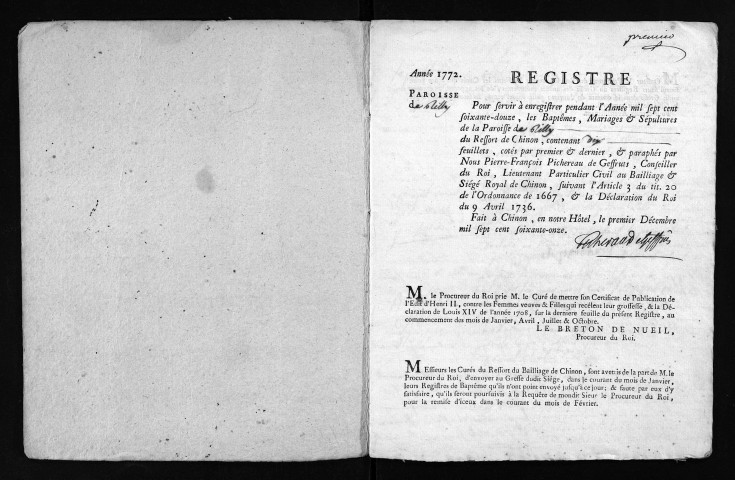 premier
Année 1772.
REGISTRE
PAROISSE
de Rilly
Pour servir à enregistrer pendant l'Année mil sept cent
soixante-douze, les Baptêmes, Mariages & Sépultures
de la Paroisse de Rilly
du Ressort de Chinon, contenant dix
feuillets, cotés par premier & dernier, & paraphés par
Nous Pierre-François Pichereau de Geffruts, Conseiller
du Roi, Lieutenant Particulier Civil au Bailliage &
Siégé Royal de Chinon, suivant l'Article 3 du tit. 20
de l'Ordonnance de 1667, & la Déclaration du Roi
du 9 Avril 1736.
Fait à Chinon, en notre Hôtel, le premier Décembre
mil sept cent soixante-onze.
M. le Procureur du Roi prie M. le Curé de mettre son Certificat de Publication de
l'Edit d'Henri II, contre les Femmes veuves & Filles qui recèlent leur grossesse, & la Dé-
claration de Louis XIV de l'année 1708, sur la derniere feuille du présent Registre, au
commencement des mois de Janvier, Avril, Juillet & Octobre.
LE BRETON DE NUEIL,
Procureur du Roi.
MEssieurs les Curés du Ressort du Bailliage de Chinon, sont avertis de la part de M. le
Procureur du Roi, d'envoyer au Greffe dudit Siége, dans le courant du mois de Janvier,
leurs Registres de Baptême qu'ils n'ont point envoyé jusqu'à ce jour; & faute par eux d'y
satisfaire, qu'ils seront poursuivis à la Requête de mondit Sieur le Procureur du Roi,
pour la remise d'iceux dans le courant du mois de Février.